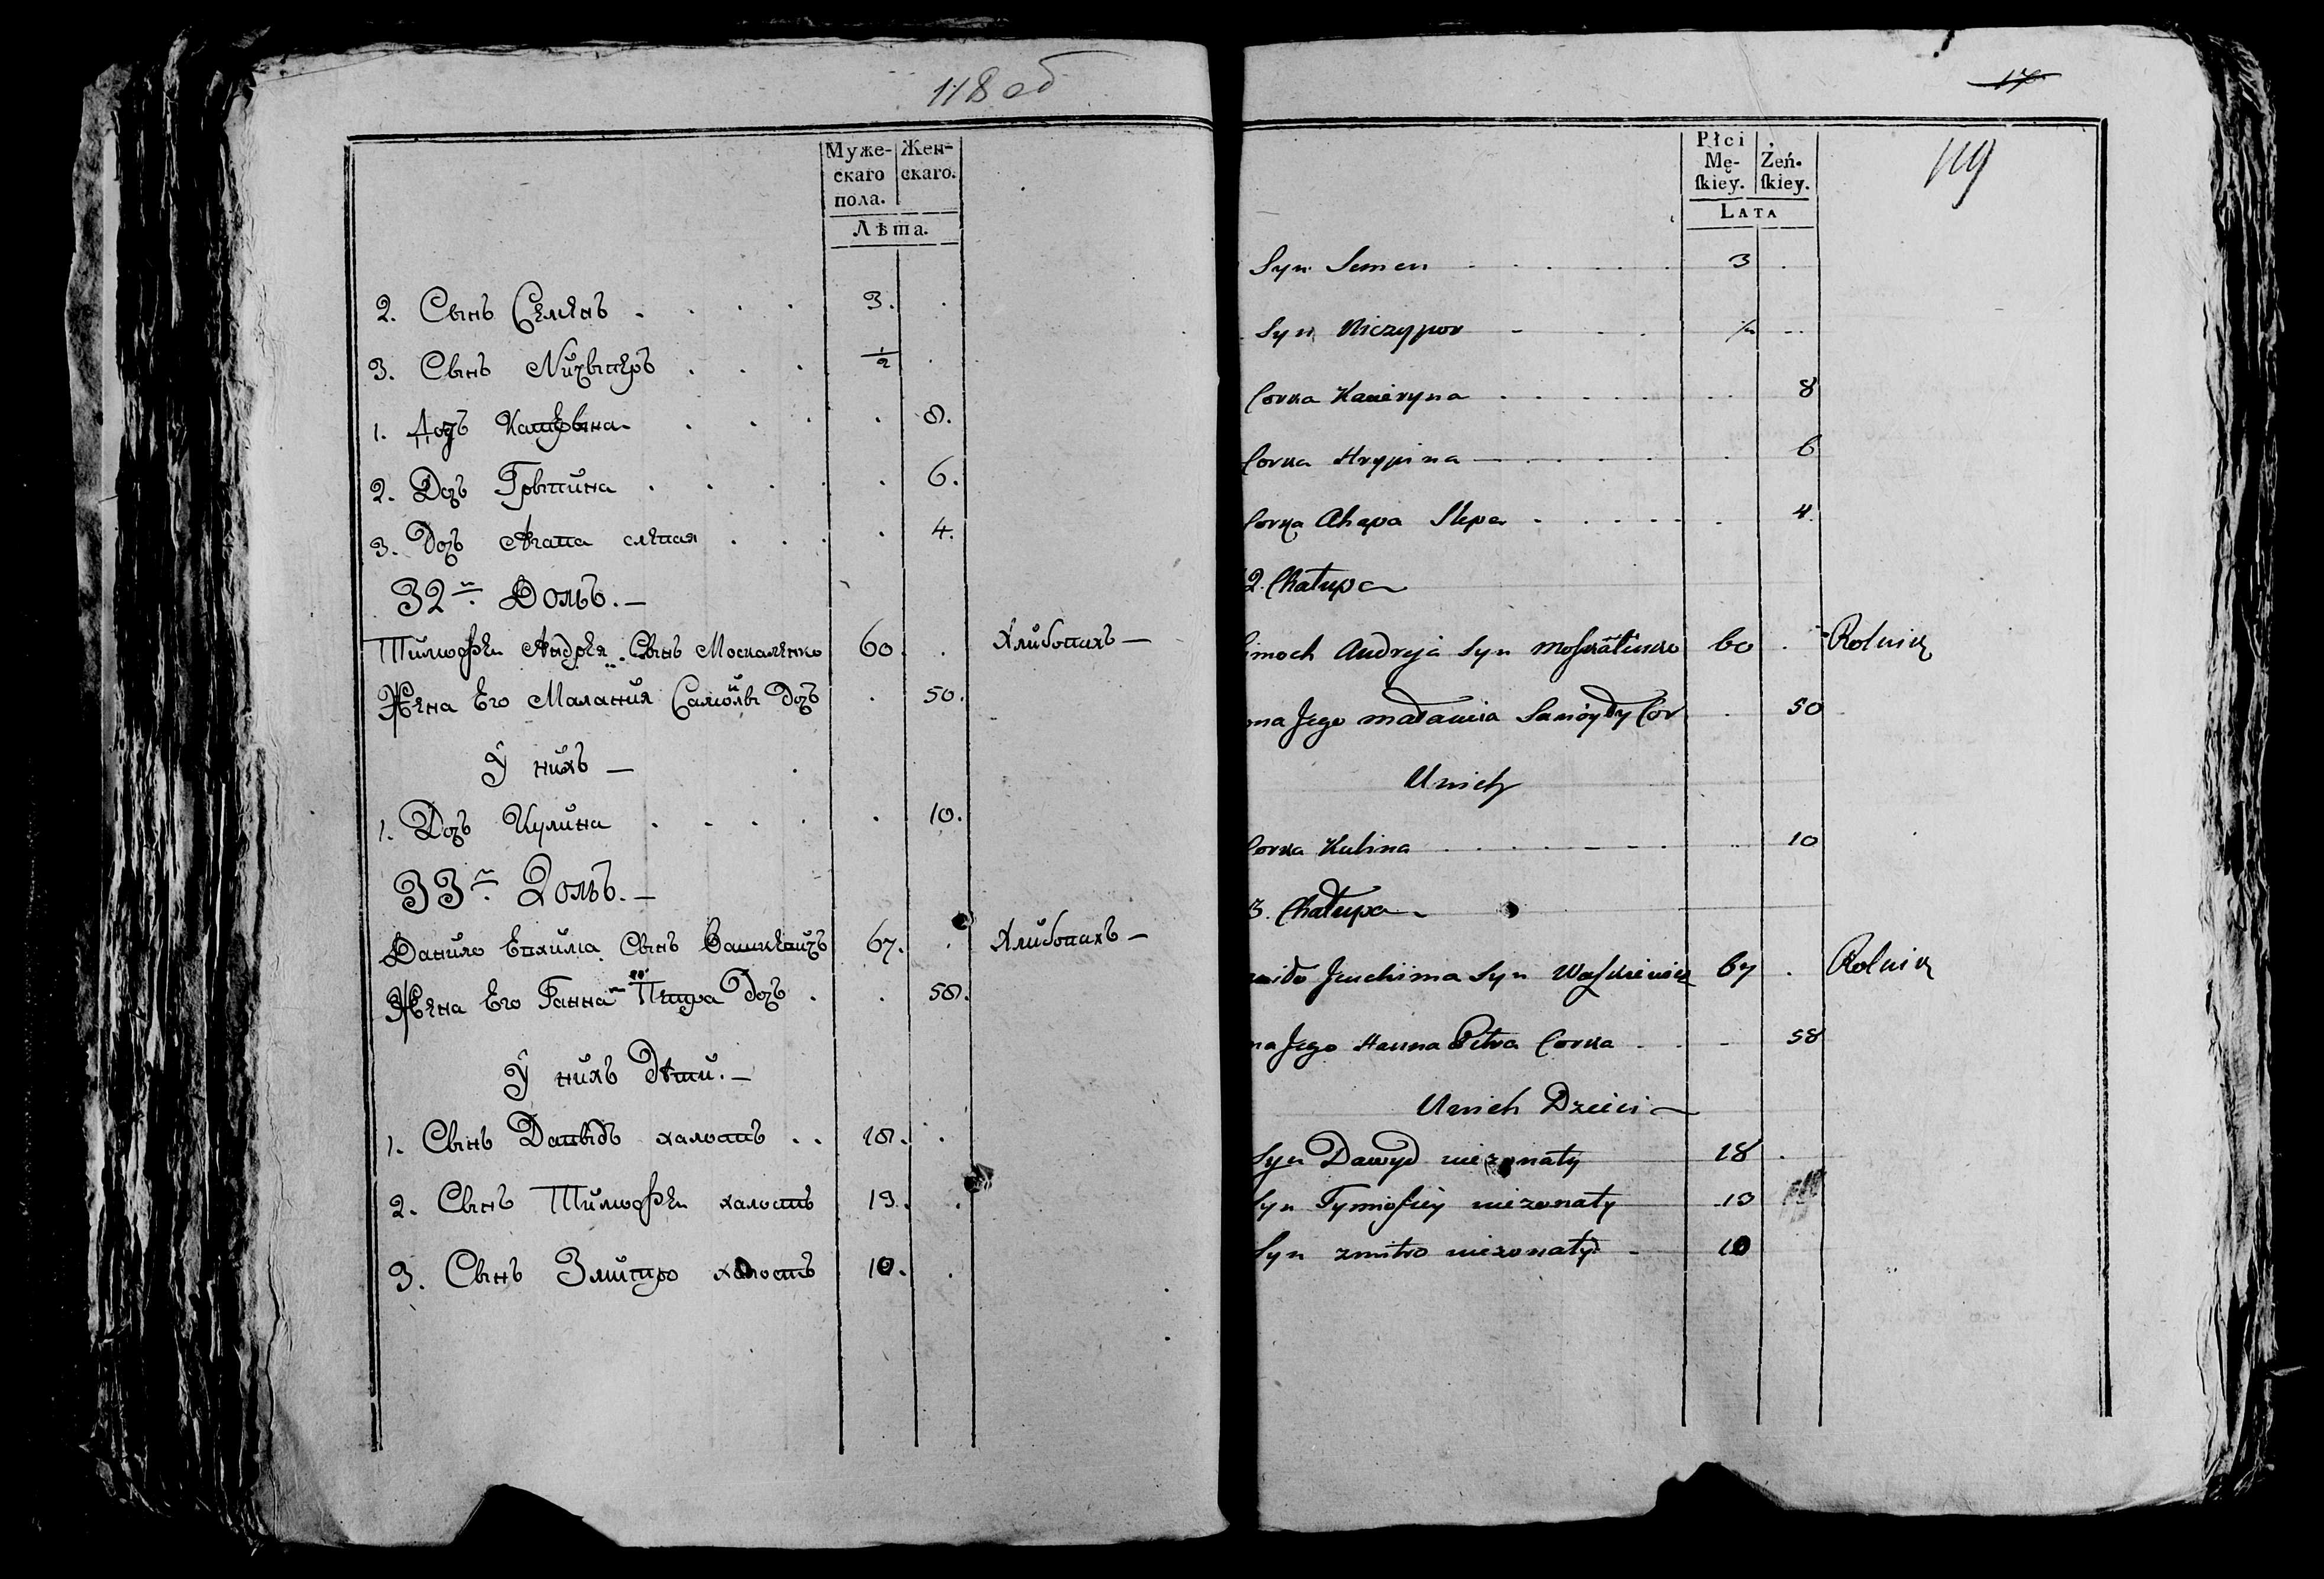 118 об
Муже-
скаго
пола.
Жен-
скаго.
Лѣта.
2. Сынъ Семенъ . . . . 3. .
3. Сынъ Ничыперъ . . . 1/2 .
1. Дочъ Катерына . . . . 8.
2. Дочъ Грыпина . . . . . 6.
3. Дочъ Агапа слепая . . . . 4.
32й Домъ.—
Тимофеи Андрея Сынъ Москаленко 60. . Хлибопахъ—
Жена Его Малания Самойлы Дочъ . 50.
У нихъ —
1. Дочъ Кулина . . . . . 10.
33й Домъ.—
Данило Евхима Сынъ Вашкевичъ 67. . Хлибопахъ—
Жена Его Ганна Петра Дочъ . . 58.
У нихъ Дѣти.—
1. Сынъ Давыдъ халостъ . . 18. .
2. Сынъ Тимофеи халостъ 13. .
3. Сынъ Змитро халостъ 10. .
17
119
Płci
Mę-
ſkiey.
Żeń-
ſkiey.
Lata
Syn Semen . . . . . 3 .
Syn Niczypor - . . . ½ ..
Corka Kateryna . . . . . . . 8
Corka Hrypina . . . . . . 6
Corka Ahapa Slepa . . . . . . 4.
2. Chałupa
imoch Andreja Syn Moskalenko 60 . Rolnik
na Jego Małania Samoyły Cor . 50
Unich
Corka Kulina . . . . . . . 10
3. Chałupa
niło Jeuchima Syn Waszkiewicz 67 . Rolnik
na Jego Hanna Petra Corka . . - 58
Unich Dzieci
Syn Dawyd niezonaty 18 .
Syn Tymofiey niezonaty 13
Syn Zmitro niezonaty 10